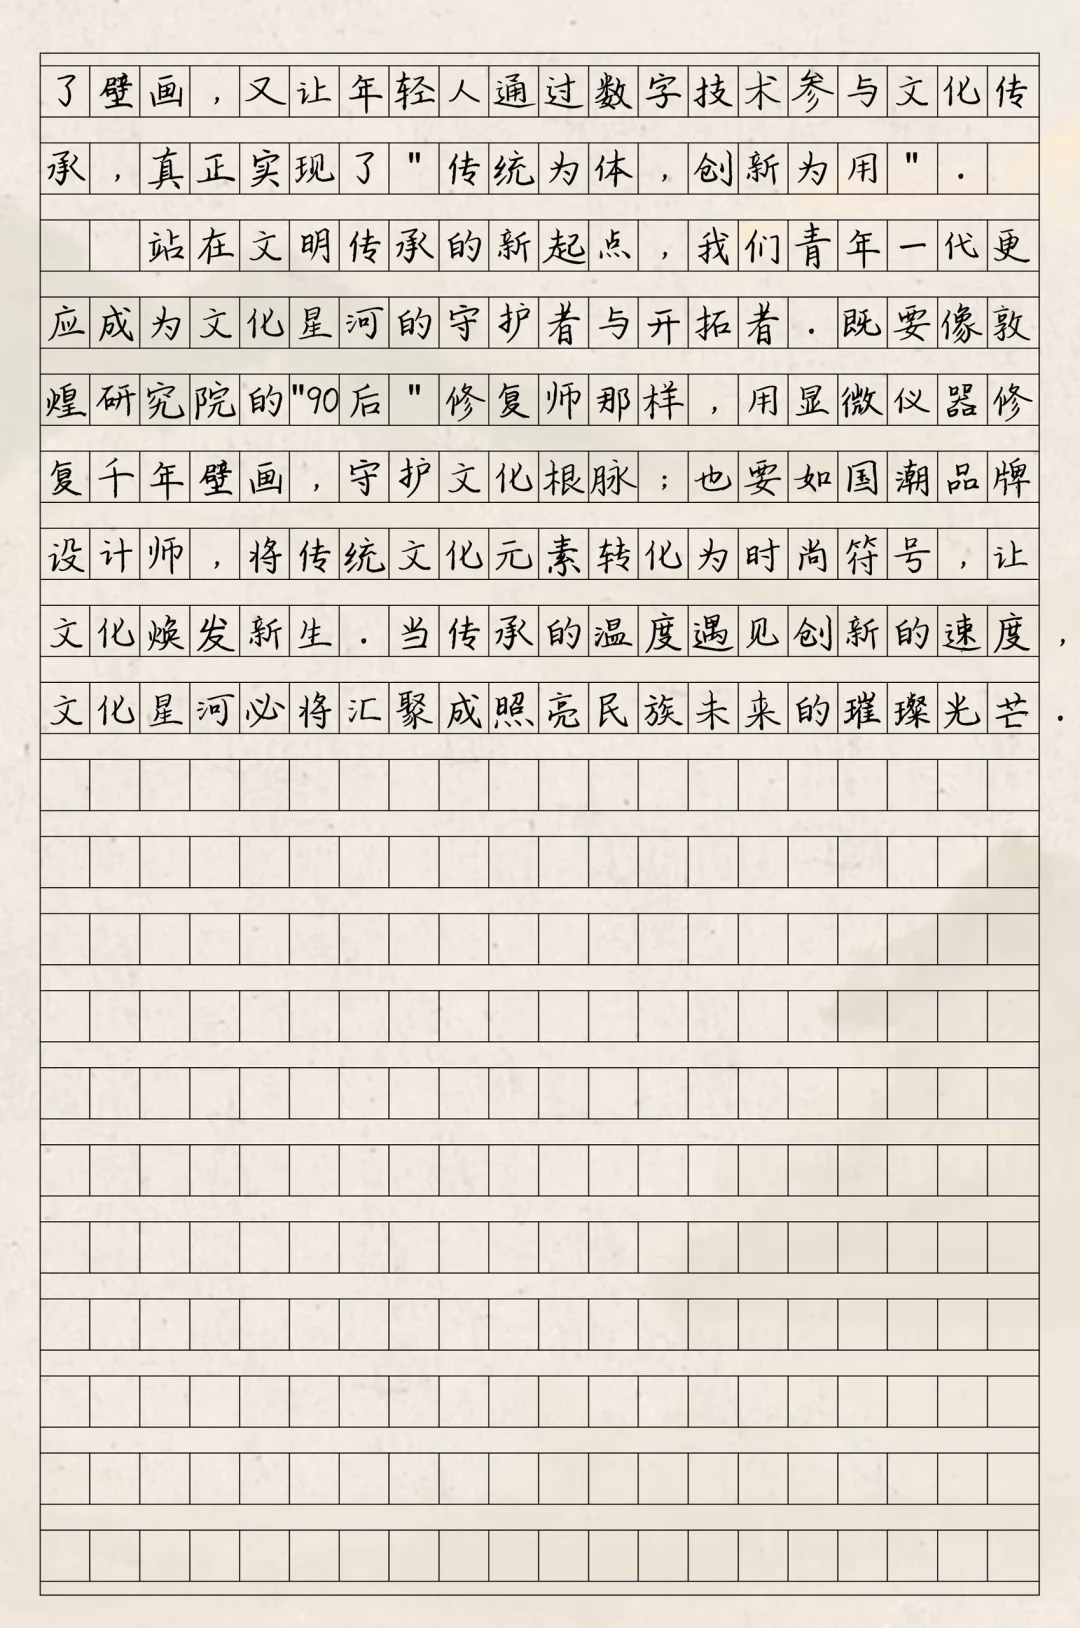 了壁画，又让年轻人通过数字技术参与文化传
承，真正实现了"传统为体，创新为用".
站在文明传承的新起点，我们青年一代更
应成为文化星河的守护者与开拓者.既要像敦
煌研究院的"90后"修复师那样，用显微仪器修
复千年壁画，守护文化根脉；也要如国潮品牌
设计师，将传统文化元素转化为时尚符号，让
文化焕发新生.当传承的温度遇见创新的速度，
文化星河必将汇聚成照亮民族未来的璀璨光芒.